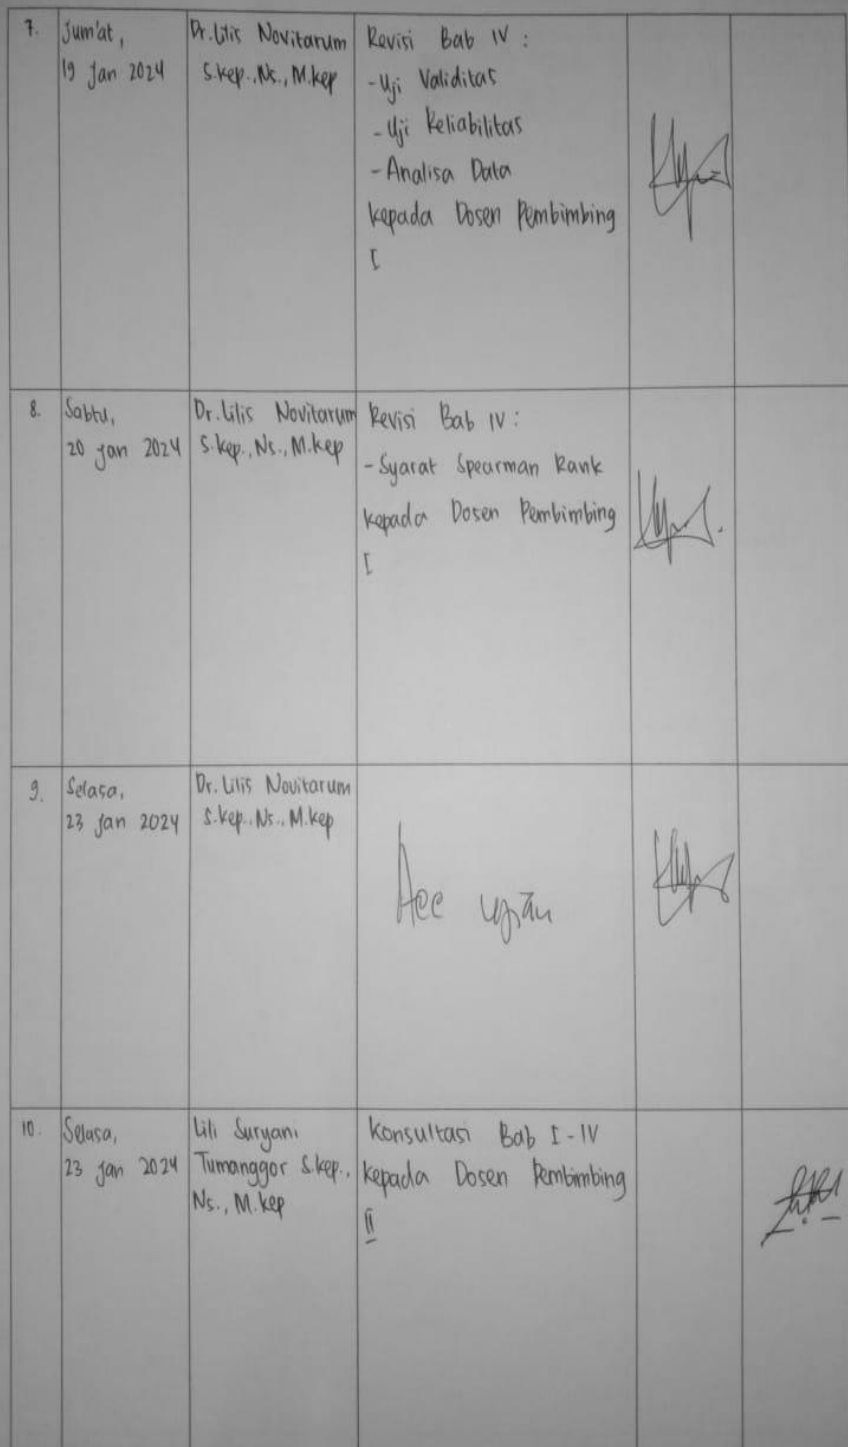 7.
Jum'at,
19 Jan 2024
Dr. Lilis Novitarum
S.kep., Ns., M.kep
Revisi Bab IV :
- Uji Validitas
- Uji Reliabilitas
- Analisa Data
kepada Dosen Pembimbing
I
8.
Sabtu,
20 Jan 2024
Dr. Lilis Novitarum
S.kep., Ns., M.kep
Revisi Bab IV :
- Syarat Spearman Rank
kepada Dosen Pembimbing
I
9.
Selasa,
23 Jan 2024
Dr. Lilis Novitarum
S.kep., Ns., M.kep
Acc ujian
10.
Selasa,
23 Jan 2024
Lili Suryani
Tumanggor S.kep.,
Ns., M.kep
Konsultasi Bab I - IV
kepada Dosen Pembimbing
II